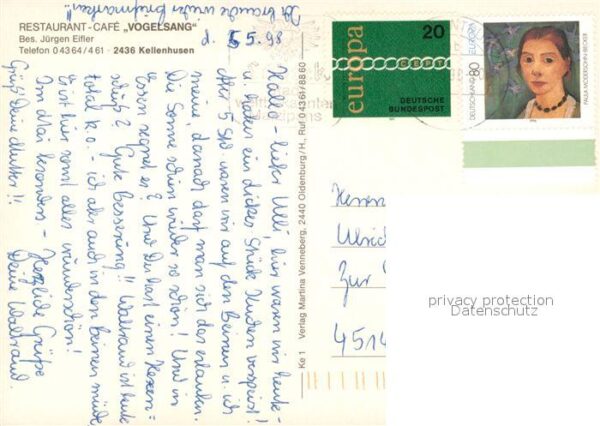 RESTAURANT-CAFÉ „VOGELSANG"
Bes. Jürgen Eifler
Telefon 04364/461 · 2436 Kellenhusen
Ich brauche wieder Briefmarken!!
d. 5.5.98
Hallo - lieber Ulli, hier waren wir heute -
u. hatten ein dickes Stück Kuchen verspeist!
Aber 5 Std. waren wir auf den Beinen u. ich
meine, danach darf man sich das erlauben.
Die Sonne schien wieder so schön! Und in
Essen regnet es? Und Du hast einen Hexen=
schuß? Gute Besserung!! Waltraud ist heute
total k.o. - ich aber auch in den Beinen müde
Es ist hier sonst alles wunderschön!
Im Mai besonders - Herzliche Grüße
Deine Waltraud.
Gruß Deine Mutter!!
Ke 1 Verlag Martina Venneberg, 2440 Oldenburg/H., Ruf 04361/8860
europa
20
CEPT
DEUTSCHE
BUNDESPOST
DEUTSCHLAND
80
EUROPA
PAULA MODERSOHN-BECKER
Herrn
Ulrich
Zur
4514
privacy protection
Datenschutz